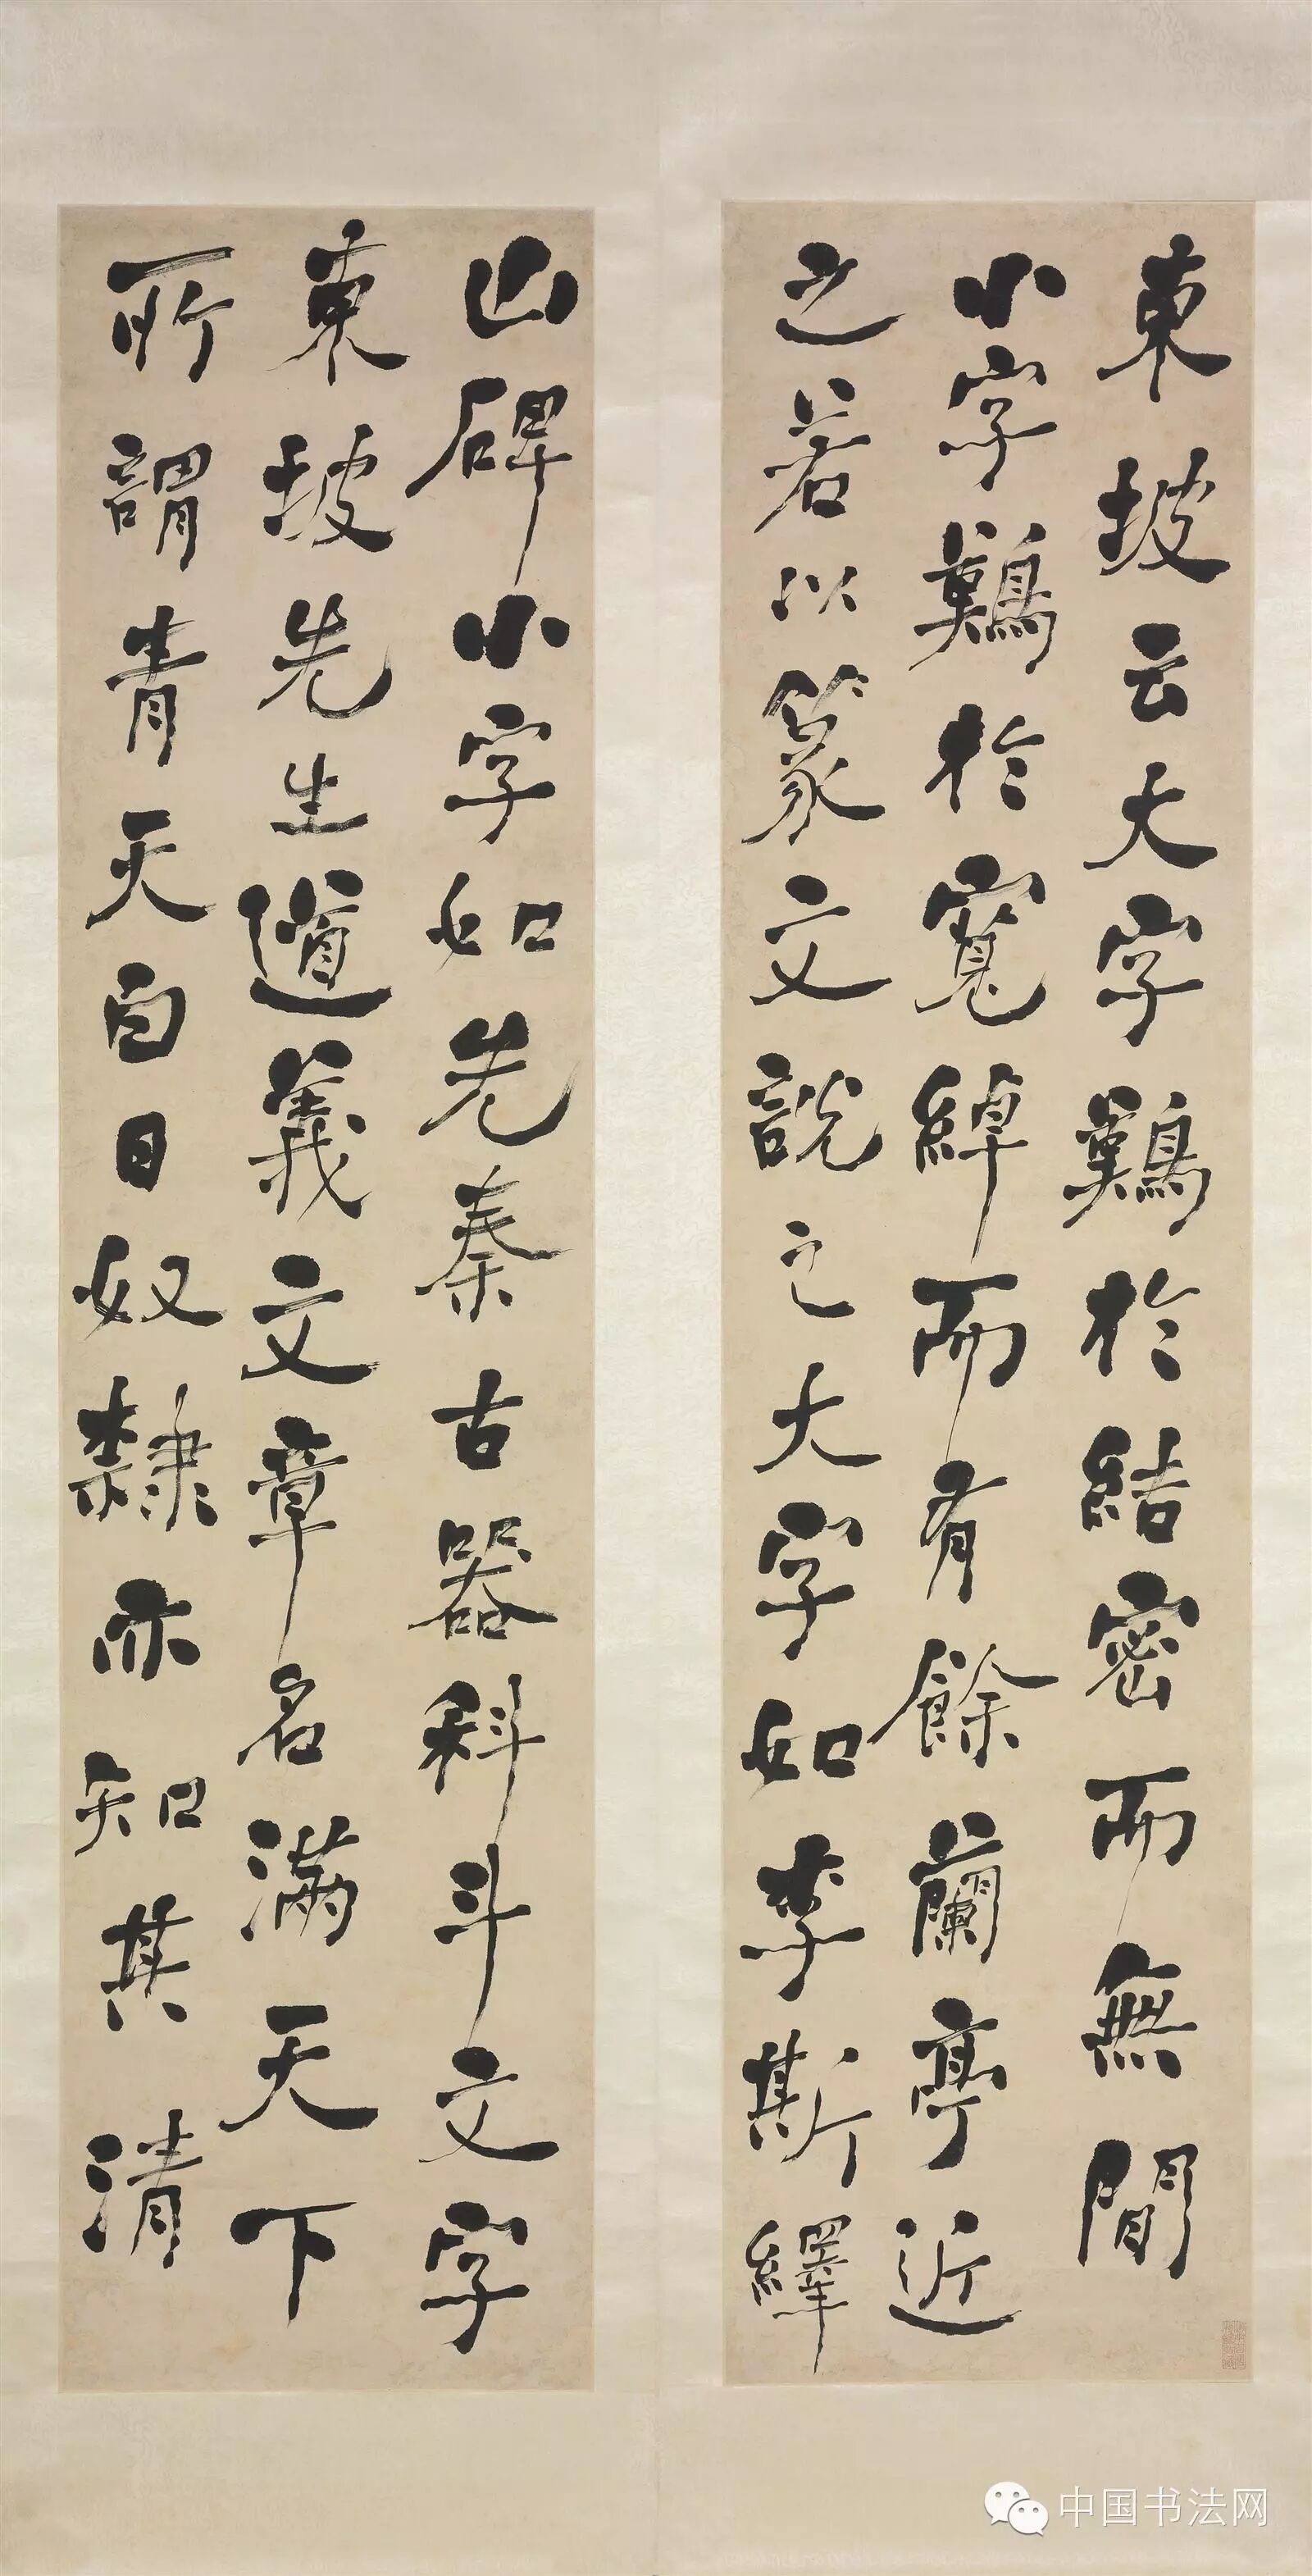 東坡云大字難於結密而無間
小字難於寬綽而有餘蘭亭近
之若以篆文說之大字如李斯繹
山碑小字如先秦古器科斗文字
東坡先生道義文章名滿天下
所謂青天白日奴隸亦知其清
中国书法网